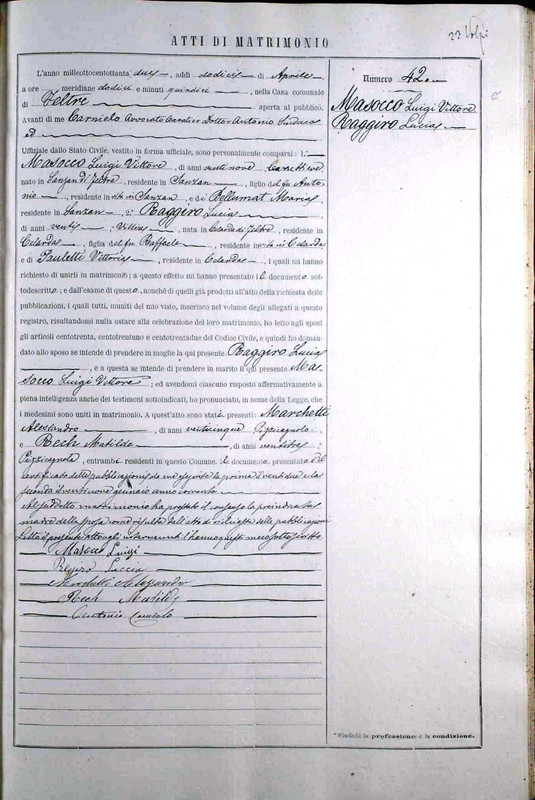 33 Volpi
ATTI DI MATRIMONIO
Numero 42
Masocco Luigi Vittore
Raggiro Lucia
L'anno milleottocentottanta due, addì dodici di Aprile
a ore meridiane dodici e minuti quindici, nella Casa comunale
di Feltre aperta al pubblico.
Avanti di me Carnielo Avvocato Cavalier Dottor Antonio Sindaco
ed
Uffiziale dello Stato Civile, vestito in forma ufficiale, sono personalmente comparsi: 1.°
Masocco Luigi Vittore, di anni ventinove, Carrettiere
nato in Sanzan di Feltre, residente in Sanzan, figlio del fu Anto-
nio, residente in vita in Sanzan, e di Bellumat Maria
residente in Sanzan, 2.° Raggiro Lucia
di anni venti, Villica, nata in Celarda di Feltre, residente in
Celarda, figlia del fu Raffaele, residente in vita in Celarda
e di Pauletti Vittoria, residente in Celarda, i quali mi hanno
richiesto di unirli in matrimonio; a questo effetto mi hanno presentato il documento sot-
todescritto; e dall'esame di questo, nonchè di quelli già prodotti all'atto della richiesta delle
pubblicazioni, i quali tutti, muniti del mio visto, inserisco nel volume degli allegati a questo
registro, risultandomi nulla ostare alla celebrazione del loro matrimonio, ho letto agli sposi
gli articoli centotrenta, centotrentuno e centotrentadue del Codice Civile, e quindi ho doman-
dato allo sposo se intende di prendere in moglie la qui presente Raggiro Lucia
, e a questa se intende di prendere in marito il qui presente Ma-
socco Luigi Vittore; ed avendomi ciascuno risposto affermativamente a
piena intelligenza anche dei testimoni sottoindicati, ho pronunciato, in nome della Legge, che
i medesimi sono uniti in matrimonio. A quest'atto sono stati presenti: Marchetti
Alessandro, di anni venticinque, Pizzicagnolo
e Rech Matilde, di anni ventitre,
Pizzicagnola, entrambi residenti in questo Comune. Il documento presentato è il
certificato delle pubblicazioni da me eseguite la prima il ventidue e la
seconda il ventinove gennaio anno corrente.
Al suddetto matrimonio ha prestato il consenso la
madre della sposa come risulta dall'atto di richiesta delle pubblicazioni
Letto il presente atto agli intervenuti l'hanno questi meco sottoscritto
Masoco Luigi
Regiro Luccia
Marchetti Alessandro
Rech Matilde
Antonio Carnielo
* S'indichi la professione o la condizione.